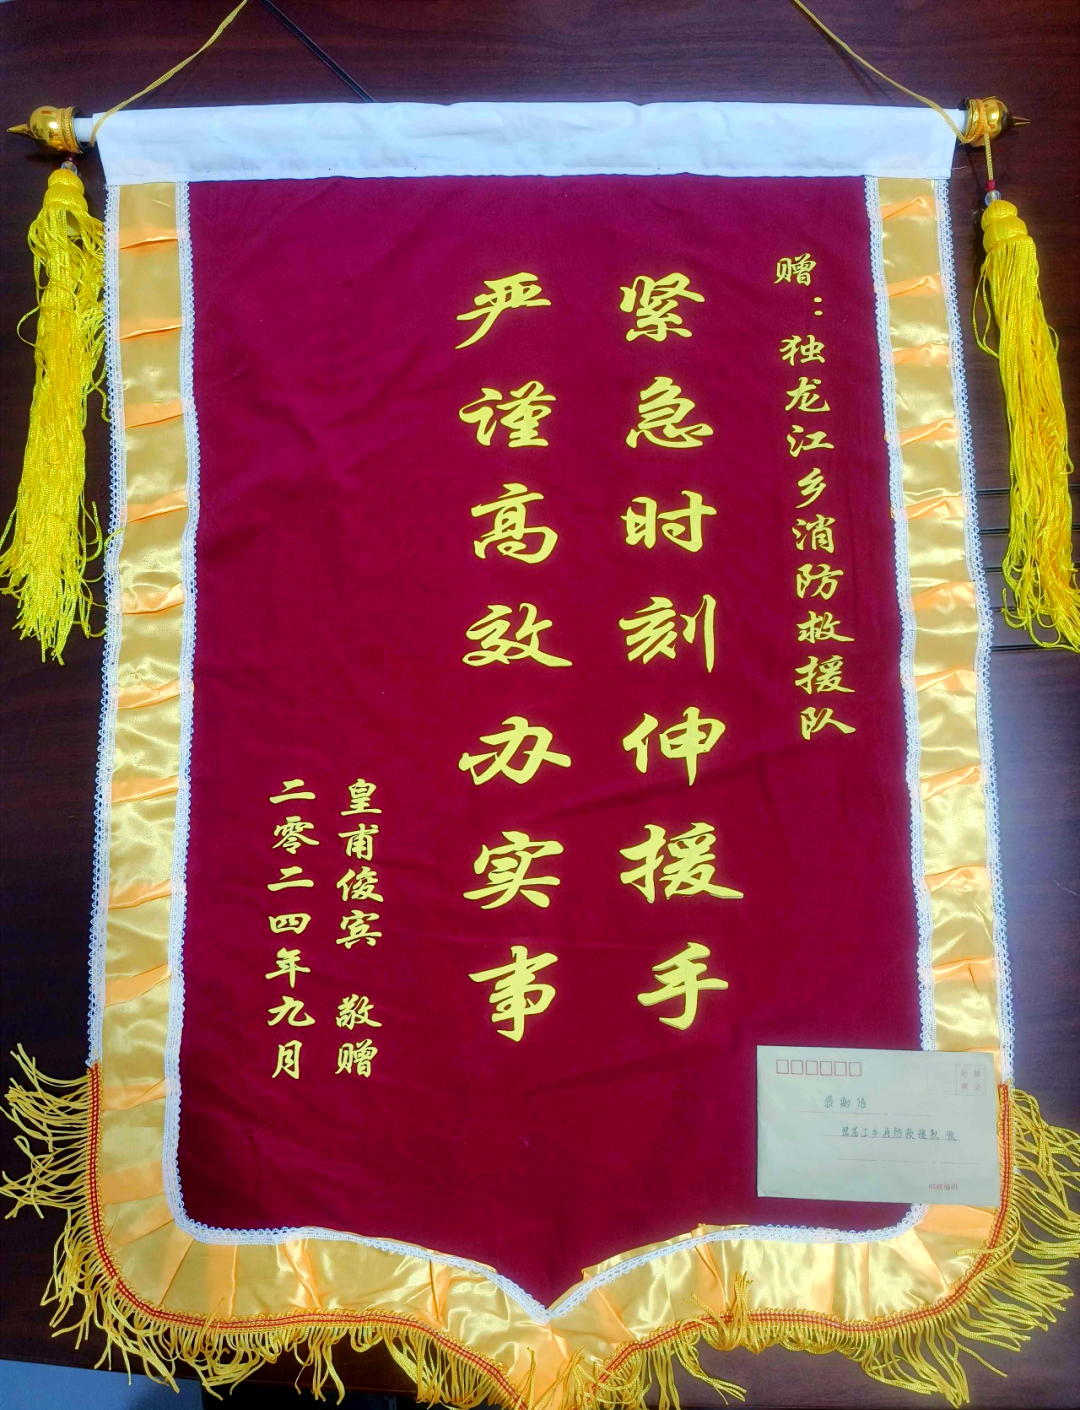 赠：独龙江乡消防救援队
紧急时刻伸援手
严谨高效办实事
皇甫俊宾 敬赠
二零二四年九月
感谢信
独龙江乡消防救援队 收
邮政编码